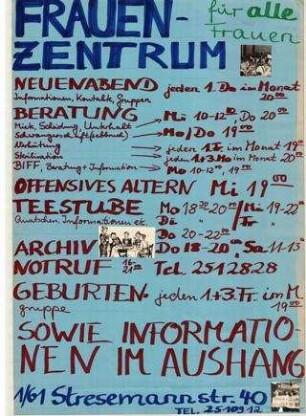 FRAUEN-
ZENTRUM
für alle
Frauen
NEUENABEND jeden 1. Do im Monat
Informationen, Kontakte, Gruppen 20⁰⁰
BERATUNG Mi 10-12⁰⁰, Do 20⁰⁰
Miet, Scheidung, Unterhalt
Schwangersch. Mo/Do 19⁰⁰
Verhütung jeden 1. Fr. im Monat 19⁰⁰
Sterilisation jeden 1+3. Mo im Monat 20⁰⁰
BIFF, Beratung + Information Mo 10-12⁰⁰, 19⁰⁰
OFFENSIVES ALTERN Mi 19⁰⁰
TEESTUBE Mo 18³⁰-20⁰⁰ / Mi 19-22⁰⁰
Quatschen, Informationen etc Di " / Fr "
ARCHIV Do 18-20⁰⁰, Sa 11-13⁰⁰
NOTRUF Tel. 2512828
GEBURTEN- jeden 1+3. Fr. im M.
gruppe 19⁰⁰
SOWIE INFORMATIO-
NEN IM AUSHANG
1/61 Stresemannstr. 40
TEL. 25 109 12